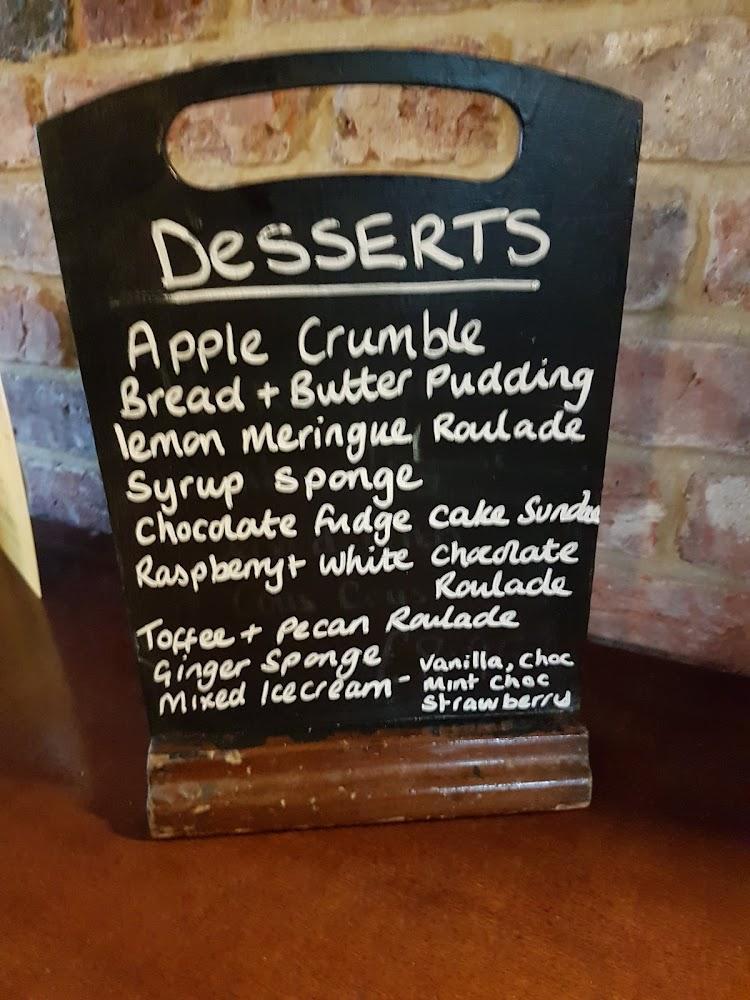 DeSSERTS
Apple Crumble
Bread + Butter Pudding
lemon Meringue Roulade
Syrup Sponge
Chocolate fudge cake Sundae
Raspberry + White Chocolate
Roulade
Toffee + Pecan Roulade
Ginger Sponge
Mixed Icecream - Vanilla, Choc
Mint Choc
Strawberry